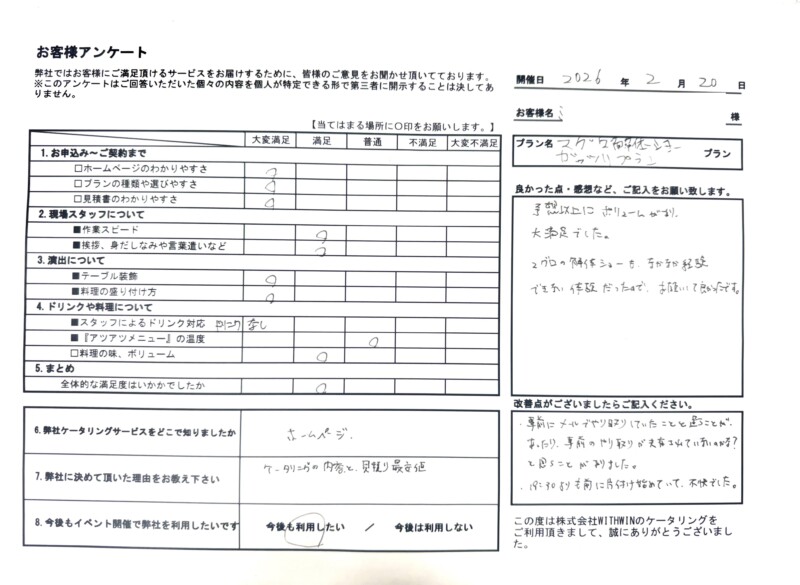 お客様アンケート
弊社ではお客様にご満足頂けるサービスをお届けするために、皆様のご意見をお聞かせ頂いてております。
※このアンケートはご回答いただいた個々の内容を個人が特定できる形で第三者に開示することは決してありません。
開催日 2026 年 2 月 20 日
お客様名 様
プラン名 マグロ解体ショー
ガッツリプラン プラン
【当てはまる場所に〇印をお願いします。】
大変満足 満足 普通 不満足 大変不満足
1.お申込み～ご契約まで
□ホームページのわかりやすさ ○
□プランの種類や選びやすさ ○
□見積書のわかりやすさ ○
2.現場スタッフについて
■作業スピード ○
■挨拶、身だしなみや言葉遣いなど ○
3.演出について
■テーブル装飾 ○
■料理の盛り付け方 ○
4.ドリンクや料理について
■スタッフによるドリンク対応 なし
■『アツアツメニュー』の温度 ○
□料理の味、ボリューム ○
5.まとめ
全体的な満足度はいかがでしたか ○
良かった点・感想など、ご記入をお願い致します。
予想以上に ボリュームがあり、
大満足でした。
マグロの解体ショーも、なかなか経験
できない 体験 だったので、お願いして良かったです。
改善点がございましたらご記入ください。
・事前にメールでやり取りしていたことと違うことが、
あったり、事前のやり取りが共有されていないのかな?
と思うことがありました。
より前に片付け始めていて、不快でした。
6.弊社ケータリングサービスをどこで知りましたか ホームページ。
7.弊社に決めて頂いた理由をお教え下さい ケータリングの内容と、見積り最安値
8.今後もイベント開催で弊社を利用したいです 今後も利用したい / 今後は利用しない
この度は株式会社WITHWINのケータリングを
ご利用頂きまして、誠にありがとうございました。